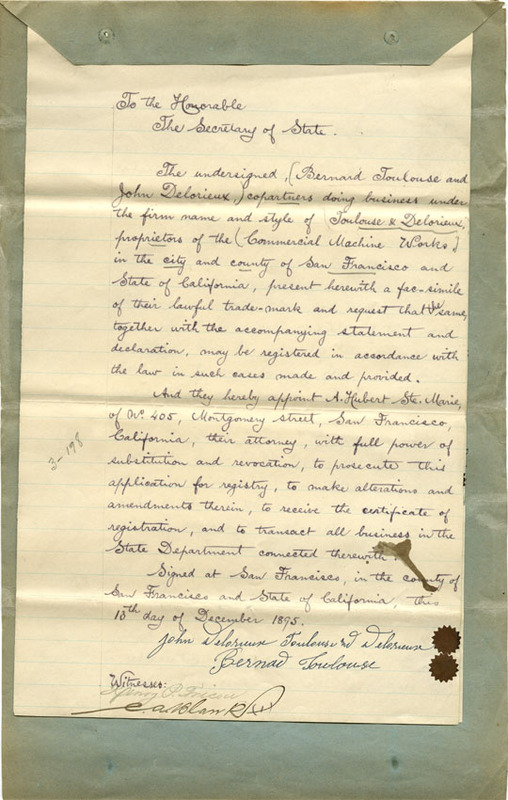 To the Honorable
The Secretary of State.
The undersigned, (Bernard Toulouse and
John Delorieux,) copartners doing business under
the firm name and style of (Toulouse & Delorieux,
proprietors of the (Commercial Machine Works)
in the city and county of San Francisco and
State of California, present herewith a fac-simile
of their lawful trade-mark and request that the same,
together with the accompanying statement and
declaration, may be registered in accordance with
the law in such cases made and provided.
And they hereby appoint A. Hubert Ste. Marie,
of No. 405, Montgomery street, San Francisco,
California, their attorney, with full power of
substitution and revocation, to prosecute this
application for registry, to make alterations and
amendments therein, to receive the certificate of
registration, and to transact all business in the
State Department connected therewith.
Signed at San Francisco, in the county of
San Francisco and State of California, this
13th day of December 1895.
John Delorieux Toulouse nd Delorieux
Bernad Toulouse
Witnesses:
3-198